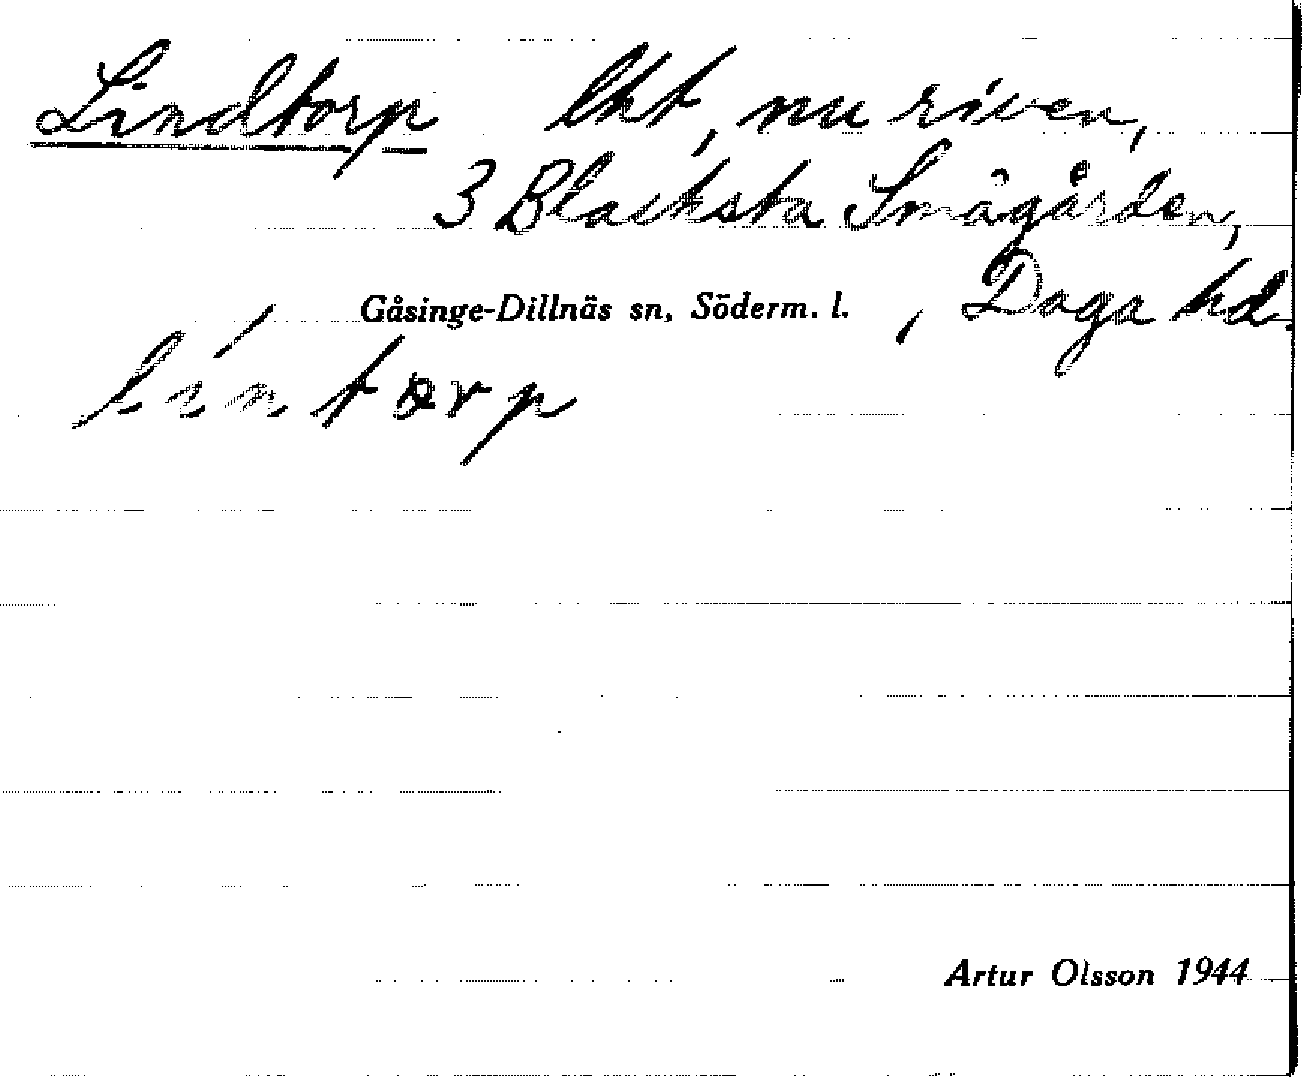 Lindtorp lht, nu riven,
3 Blacksta Smågården,
Gåsinge-Dillnäs sn, Söderm. l. , Daga hd.
lintorp
Artur Olsson 1944